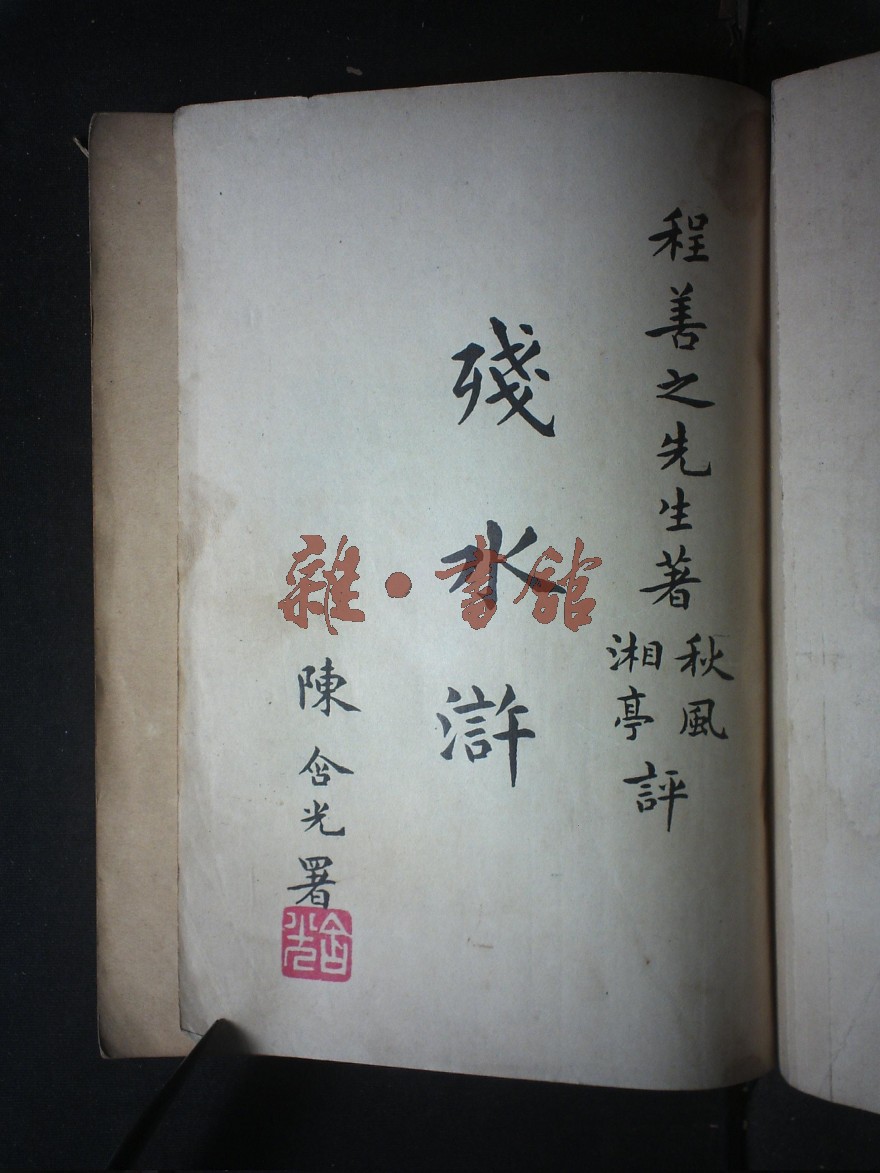 程善之先生著
秋風
湘亭
評
殘水滸
陳含光署
含光
雜·書館